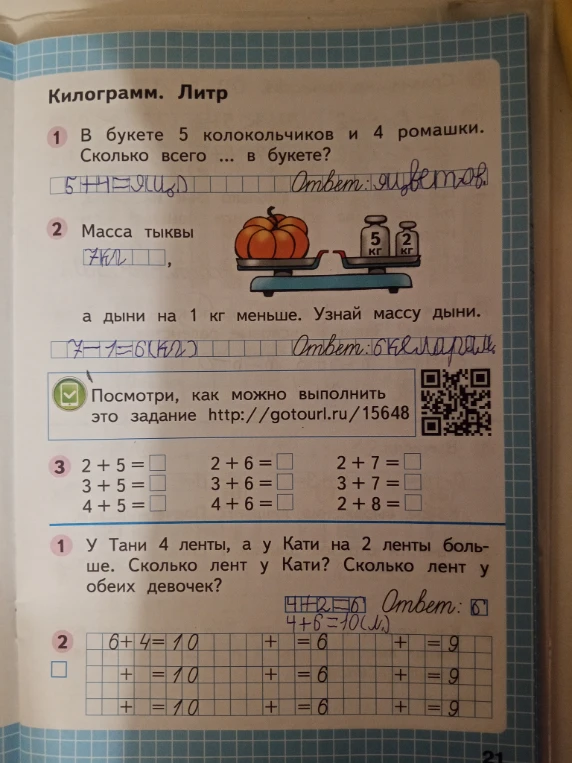 Килограмм. Литр
1 В букете 5 колокольчиков и 4 ромашки.
Сколько всего ... в букете?
5+4=9(ц.) Ответ: 9 цветов.
2 Масса тыквы
7 кг ,
5 кг 2 кг
а дыни на 1 кг меньше. Узнай массу дыни.
7-1=6(кг) Ответ: 6
Посмотри, как можно выполнить
это задание http://gotourl.ru/15648
3 2 + 5 = 2 + 6 = 2 + 7 =
3 + 5 = 3 + 6 = 3 + 7 =
4 + 5 = 4 + 6 = 2 + 8 =
1 У Тани 4 ленты, а у Кати на 2 ленты боль-
ше. Сколько лент у Кати? Сколько лент у
обеих девочек?
4+2=6 Ответ: 6
4+6=10(л.)
2 6+4=10 + =6 + =9
+ =10 + =6 + =9
+ =10 + =6 + =9
21